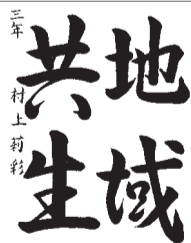 地域
共生
三年 村上莉彩